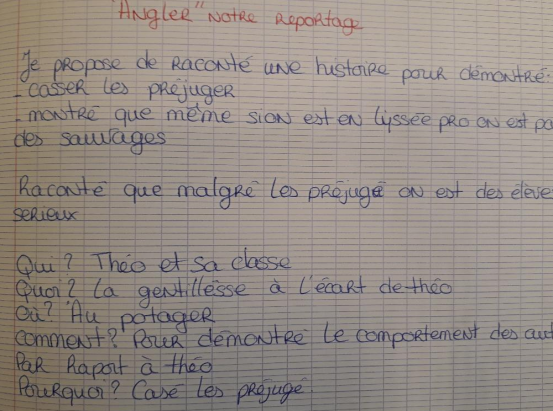 "Angler" notre reportage
Je propose de raconté une histoire pour démontré:
- casser les préjuger
- montré que même sion est en lyssée pro on est pa
des sauvages
Raconté que malgré les préjugé on est des éleve
serieux
Qui? Théo et sa classe
Quoi? la gentillesse à l'écart de théo
où? Au potager
comment? Pour démontré le comportement des aut
Par Raport à théo
Pourquoi? Casé les préjugé.